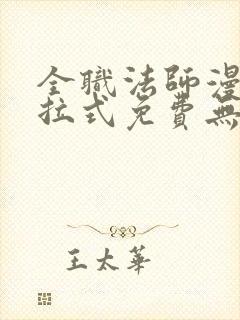 全職法師漫
拉式免費無
王太華